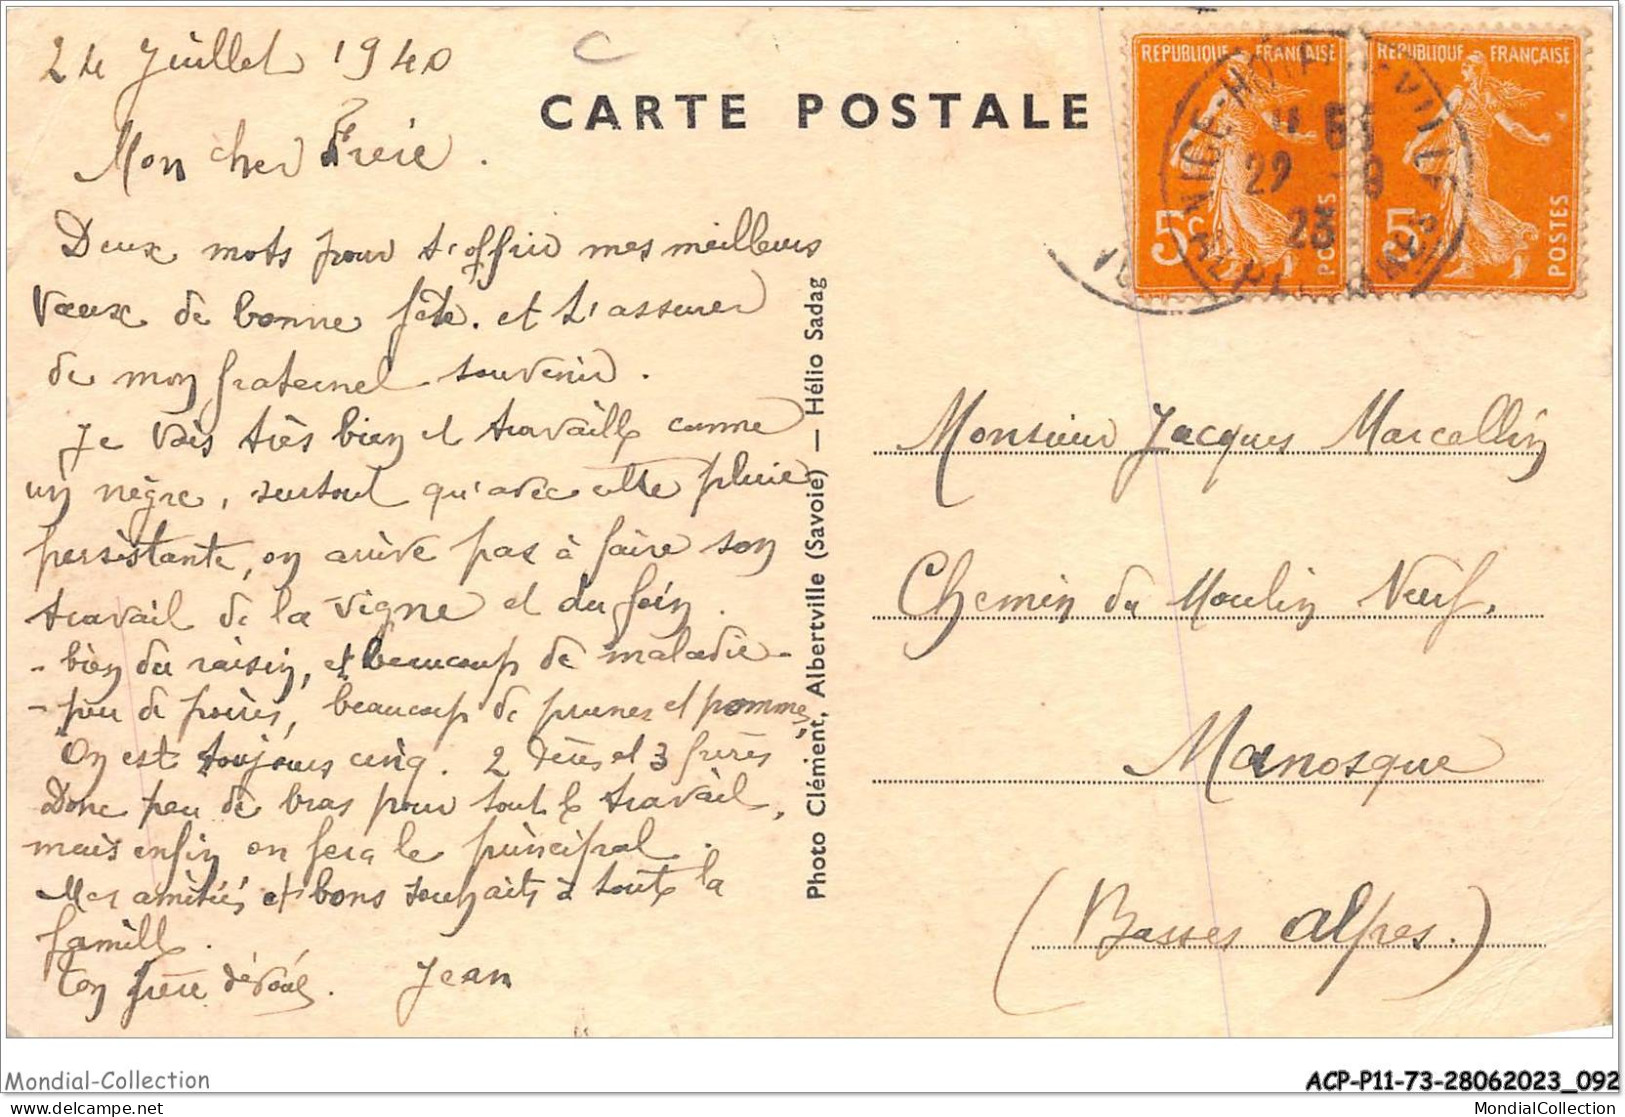 24 Juillet 1940
CARTE POSTALE
Mon cher Frère.
Deux mots pour t'offrir mes meilleurs
Vœux de bonne fête. et t'assurer
de mon fraternel souvenir.
Je vais très bien et travaille comme
un nègre, surtout qu'avec cette pluie
persistante, on arrive pas à faire son
travail de la vigne et du foin.
- bien du raisin, et beaucoup de maladie -
- peu de poires, beaucoup de prunes et pommes
On est toujours cinq. 2 Pères et 3 frères
Donc peu de bras pour tout le travail,
mais enfin on fera le principal.
Mes amitiés et bons souhaits à toute la
famille.
ton frère dévoué. Jean
Photo Clément, Albertville (Savoie) — Hélio Sadag
REPUBLIQUE FRANÇAISE
5c POSTES
REPUBLIQUE FRANÇAISE
5c POSTES
NICE-HOTEL-DE-VILLE
29 -9
23
ALPES MMES
Monsieur Jacques Marcellin
Chemin du Moulin Neuf,
Manosque
(Basses Alpes.)
Mondial-Collection
ACP-P11-73-28062023_092
www.delcampe.net
MondialCollection